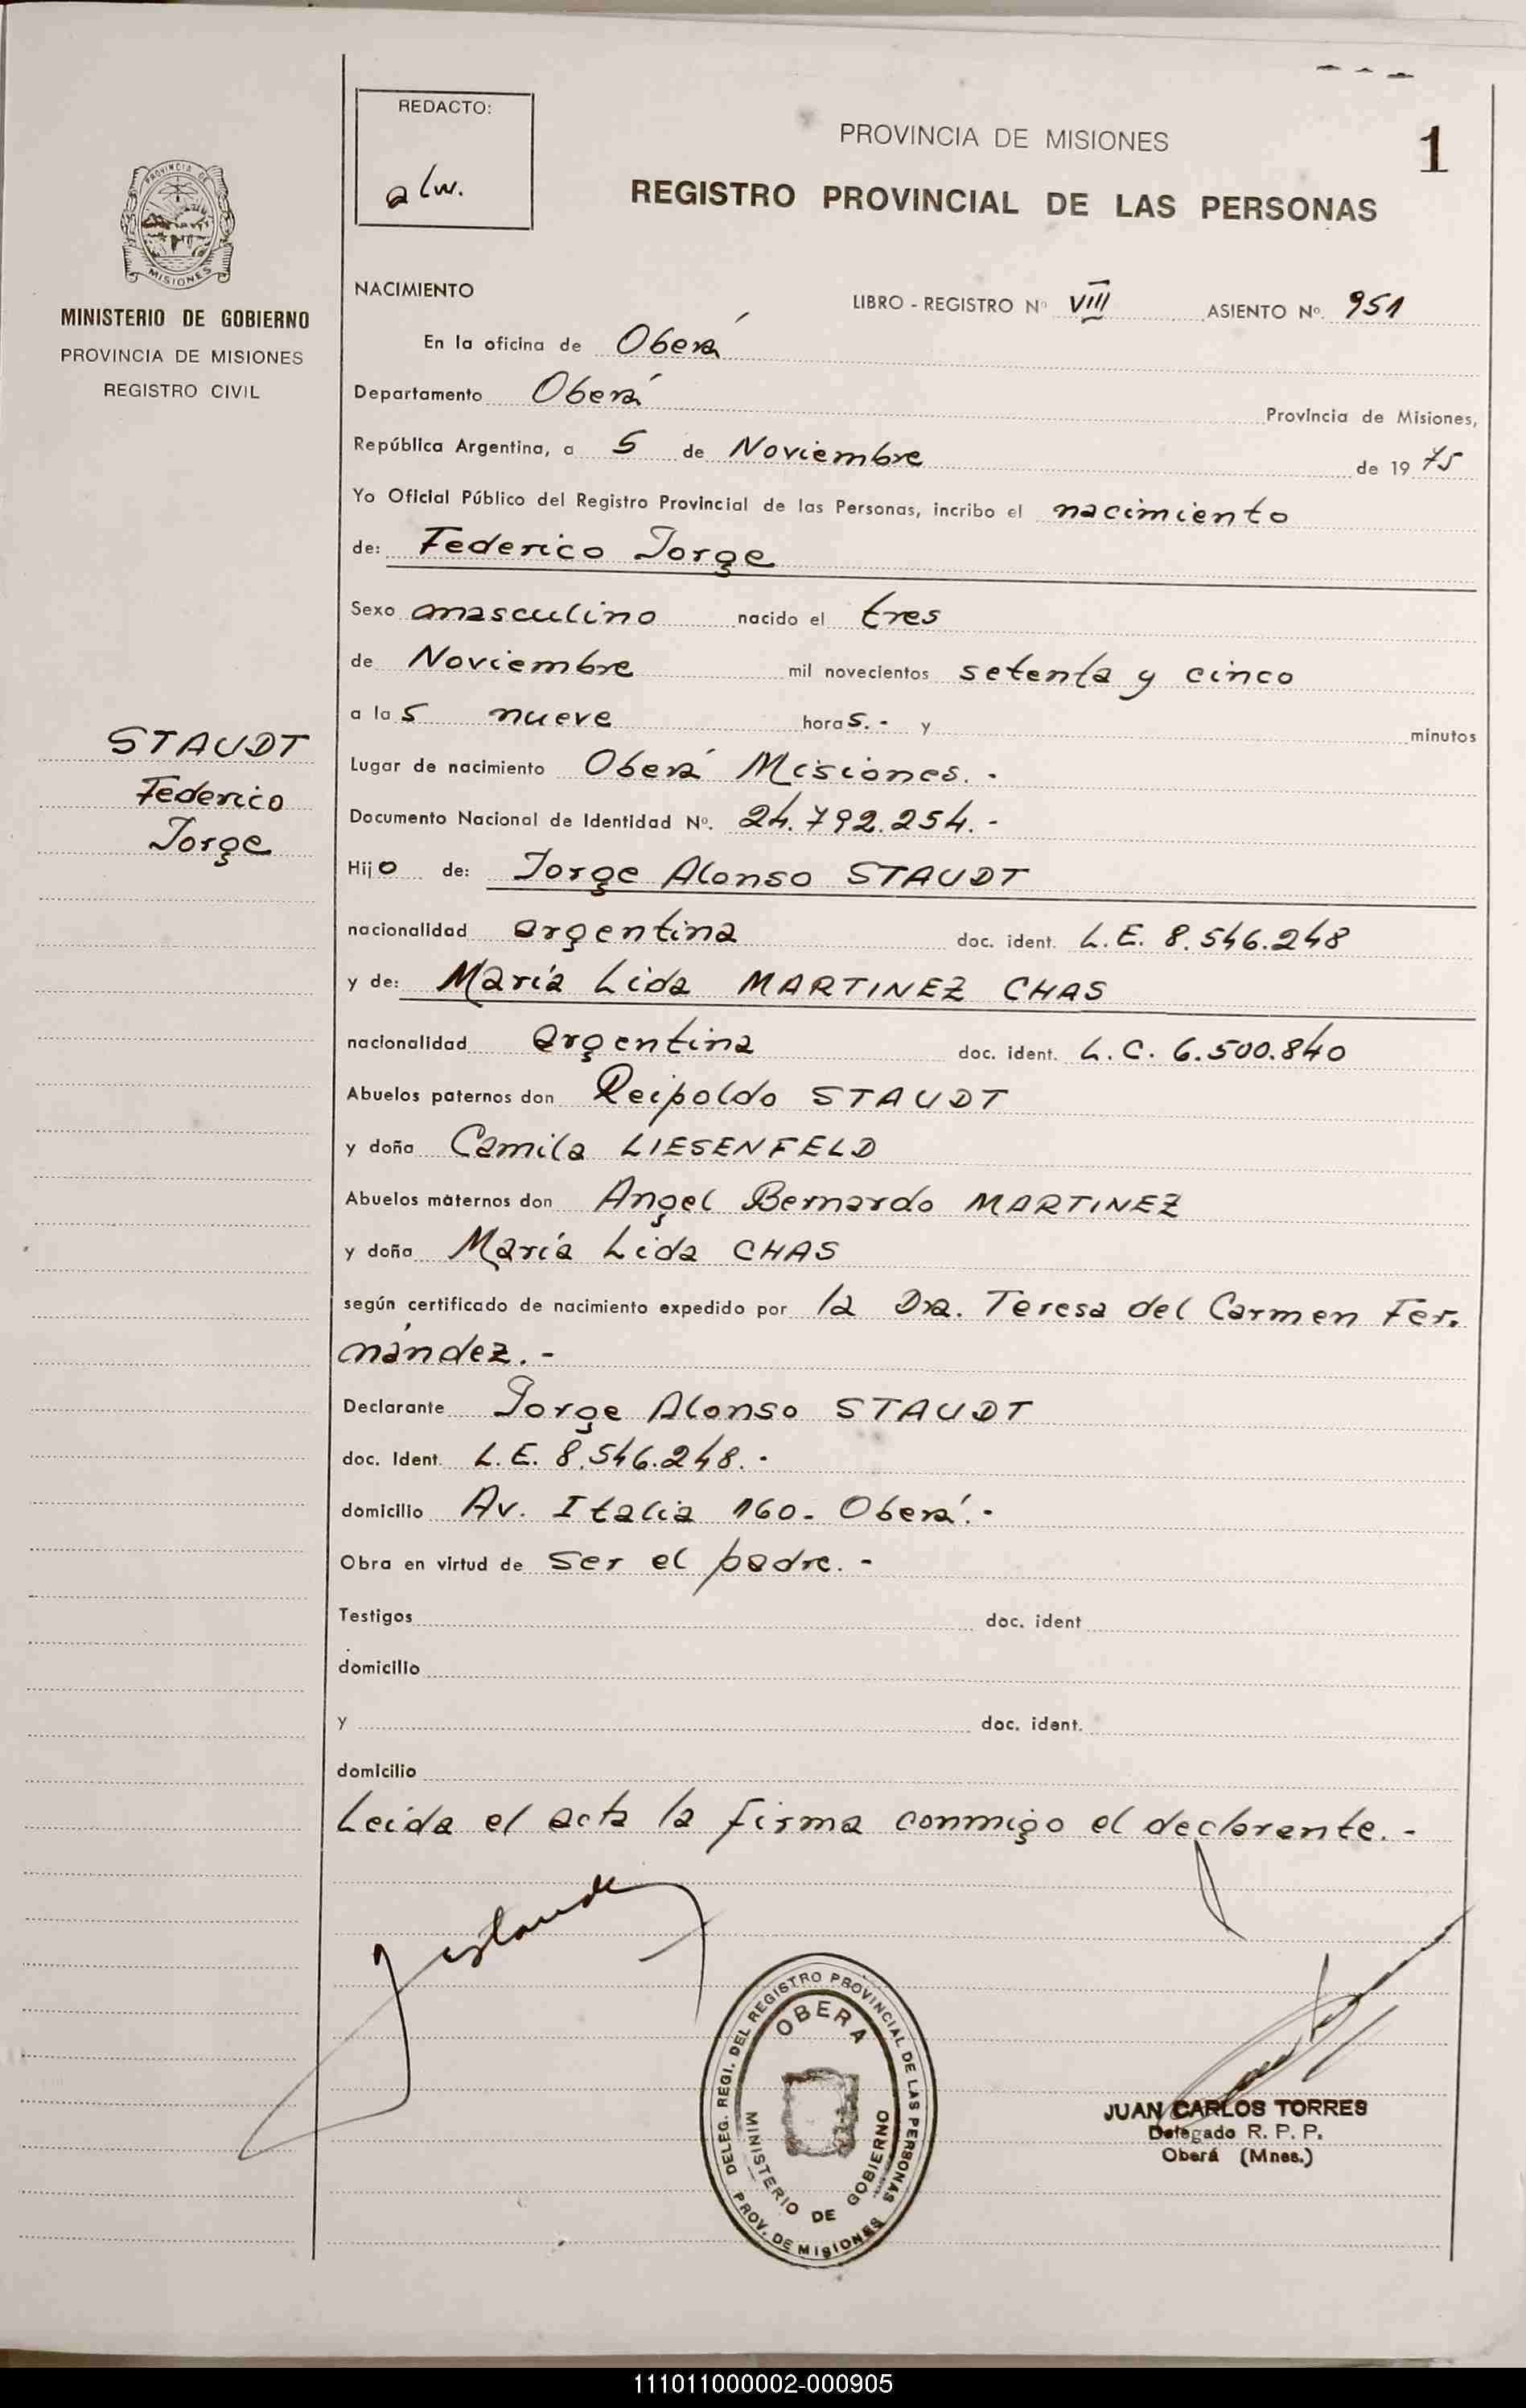 REDACTO:
alw.
PROVINCIA DE MISIONES
1
REGISTRO PROVINCIAL DE LAS PERSONAS
PROVINCIA DE
MISIONES
MINISTERIO DE GOBIERNO
PROVINCIA DE MISIONES
REGISTRO CIVIL
NACIMIENTO
LIBRO - REGISTRO Nº VIII ASIENTO Nº. 951
En la oficina de Oberá
Departamento Oberá Provincia de Misiones,
República Argentina, a 5 de Noviembre de 19 75
Yo Oficial Público del Registro Provincial de las Personas, incribo el nacimiento
de: Federico Jorge
Sexo masculino nacido el tres
de Noviembre mil novecientos setenta y cinco
a las nueve horas.- y minutos
STAUDT
Federico
Jorge
Lugar de nacimiento Oberá Misiones.-
Documento Nacional de Identidad Nº. 24.792.254.-
Hijo de: Jorge Alonso STAUDT
nacionalidad argentina doc. ident. L.E. 8.546.248
y de: María Lida MARTINEZ CHAS
nacionalidad argentina doc. ident. L.C. 6.500.840
Abuelos paternos don Reipoldo STAUDT
y doña Camila LIESENFELD
Abuelos maternos don Angel Bernardo MARTINEZ
y doña María Lida CHAS
según certificado de nacimiento expedido por la Dra. Teresa del Carmen Fer-
nández.-
Declarante Jorge Alonso STAUDT
doc. Ident. L.E. 8.546.248.-
domicilio Av. Italia 160- Oberá.-
Obra en virtud de ser el padre.-
Testigos doc. ident
domicilio
y doc. ident.
domicilio
Leída el acta la firma conmigo el declarante.-
DELEG. REGI. DEL REGISTRO PROVINCIAL DE LAS PERSONAS
OBERA
MINISTERIO DE GOBIERNO
PROV. DE MISIONES
JUAN CARLOS TORRES
Delegado R. P. P.
Oberá (Mnes.)
111011000002-000905